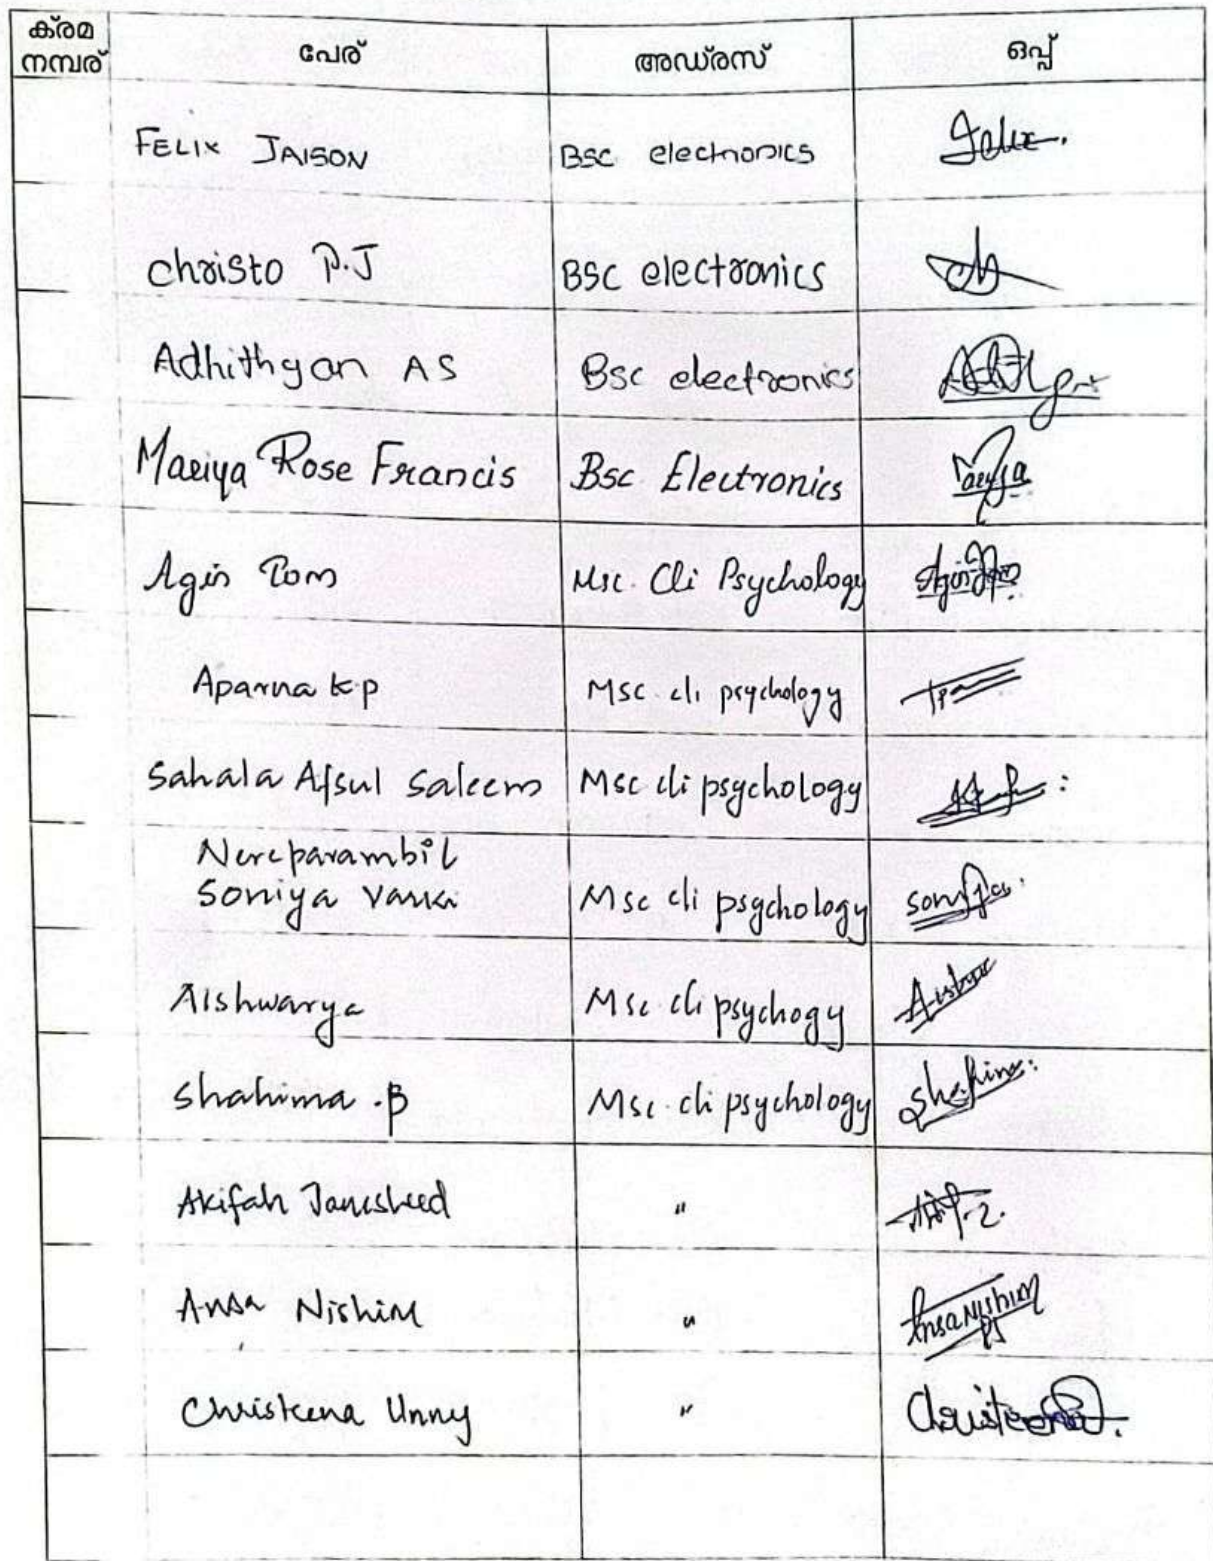 ക്രമ നമ്പര് പേര് അഡ്രസ് ഒപ്പ്
FELIX JAISON BSC electronics Felix.
Christo P.J BSC electronics
Adhithyan AS Bsc electronics
Mariya Rose Francis Bsc Electronics
Agin Tom Msc. Cli Psychology
Aparna K.p Msc cli psychology
Sahala Afsul Saleem Msc cli psychology
Nereparambil
Soniya Varki Msc cli psychology Soniya
Aishwarya Msc cli psychogy
Shahima .B Msc. cli psychology Shahima
Akifah "
Ansa Nishim " Ansa Nishim
Christeena Unny " Christeena